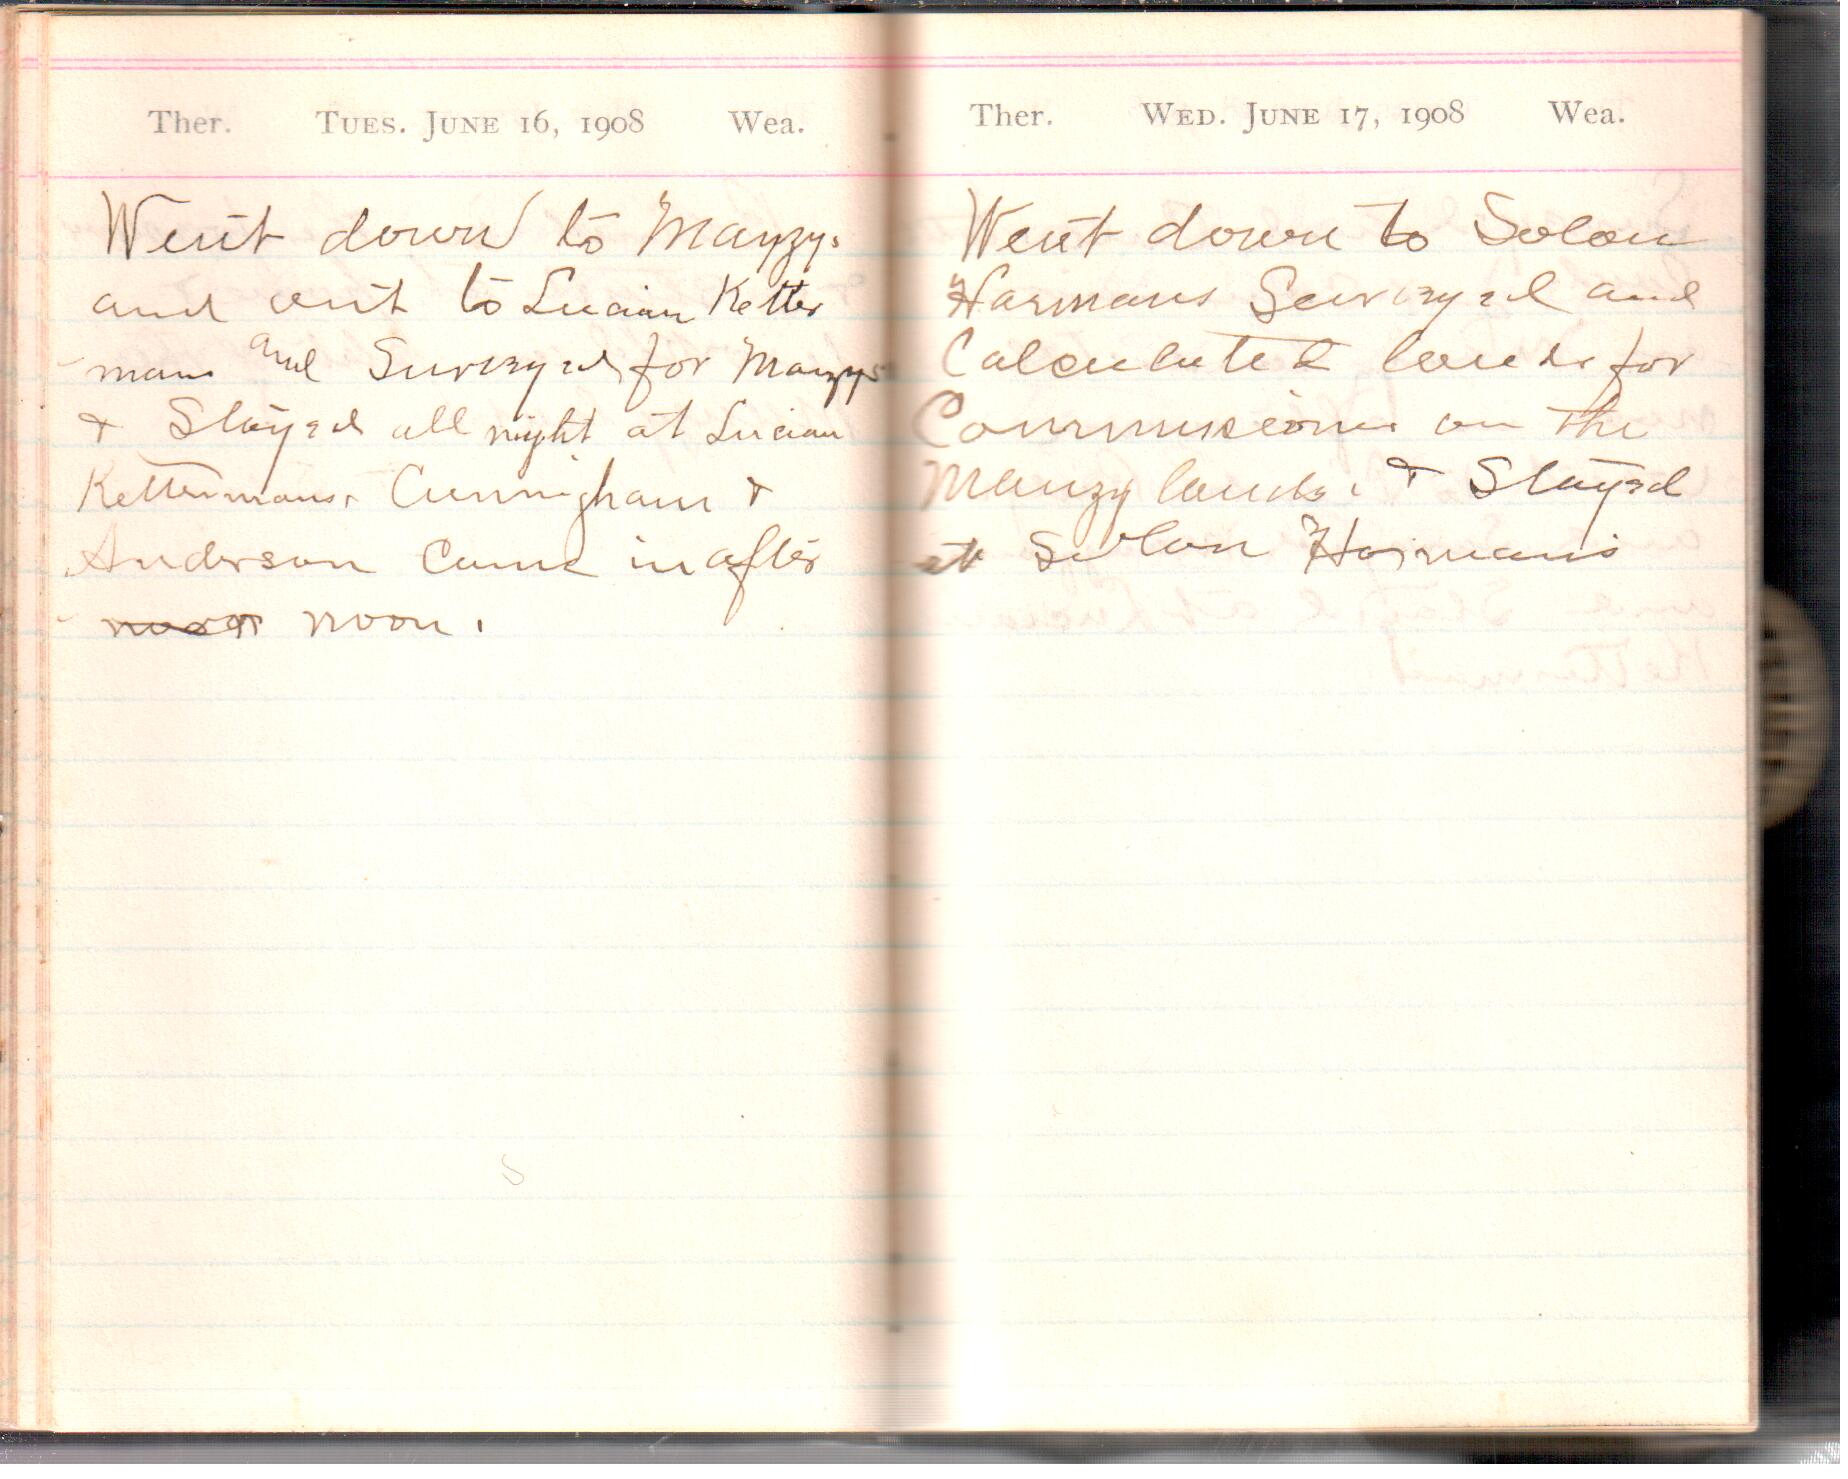 Ther. Tues. June 16, 1908 Wea.
Went down to Mauzys
and went to Lucian Ketter
-mans and Surveyed for Mauzys
& Stayed all night at Lucian
Kettermans. Cunningham &
Anderson Came in after
noon.
Ther. Wed. June 17, 1908 Wea.
Went down to Solon
Harmans Surveyed and
Calculated lands for
Commissioners on the
Mauzy lands. & Stayed
at Solon Harmans